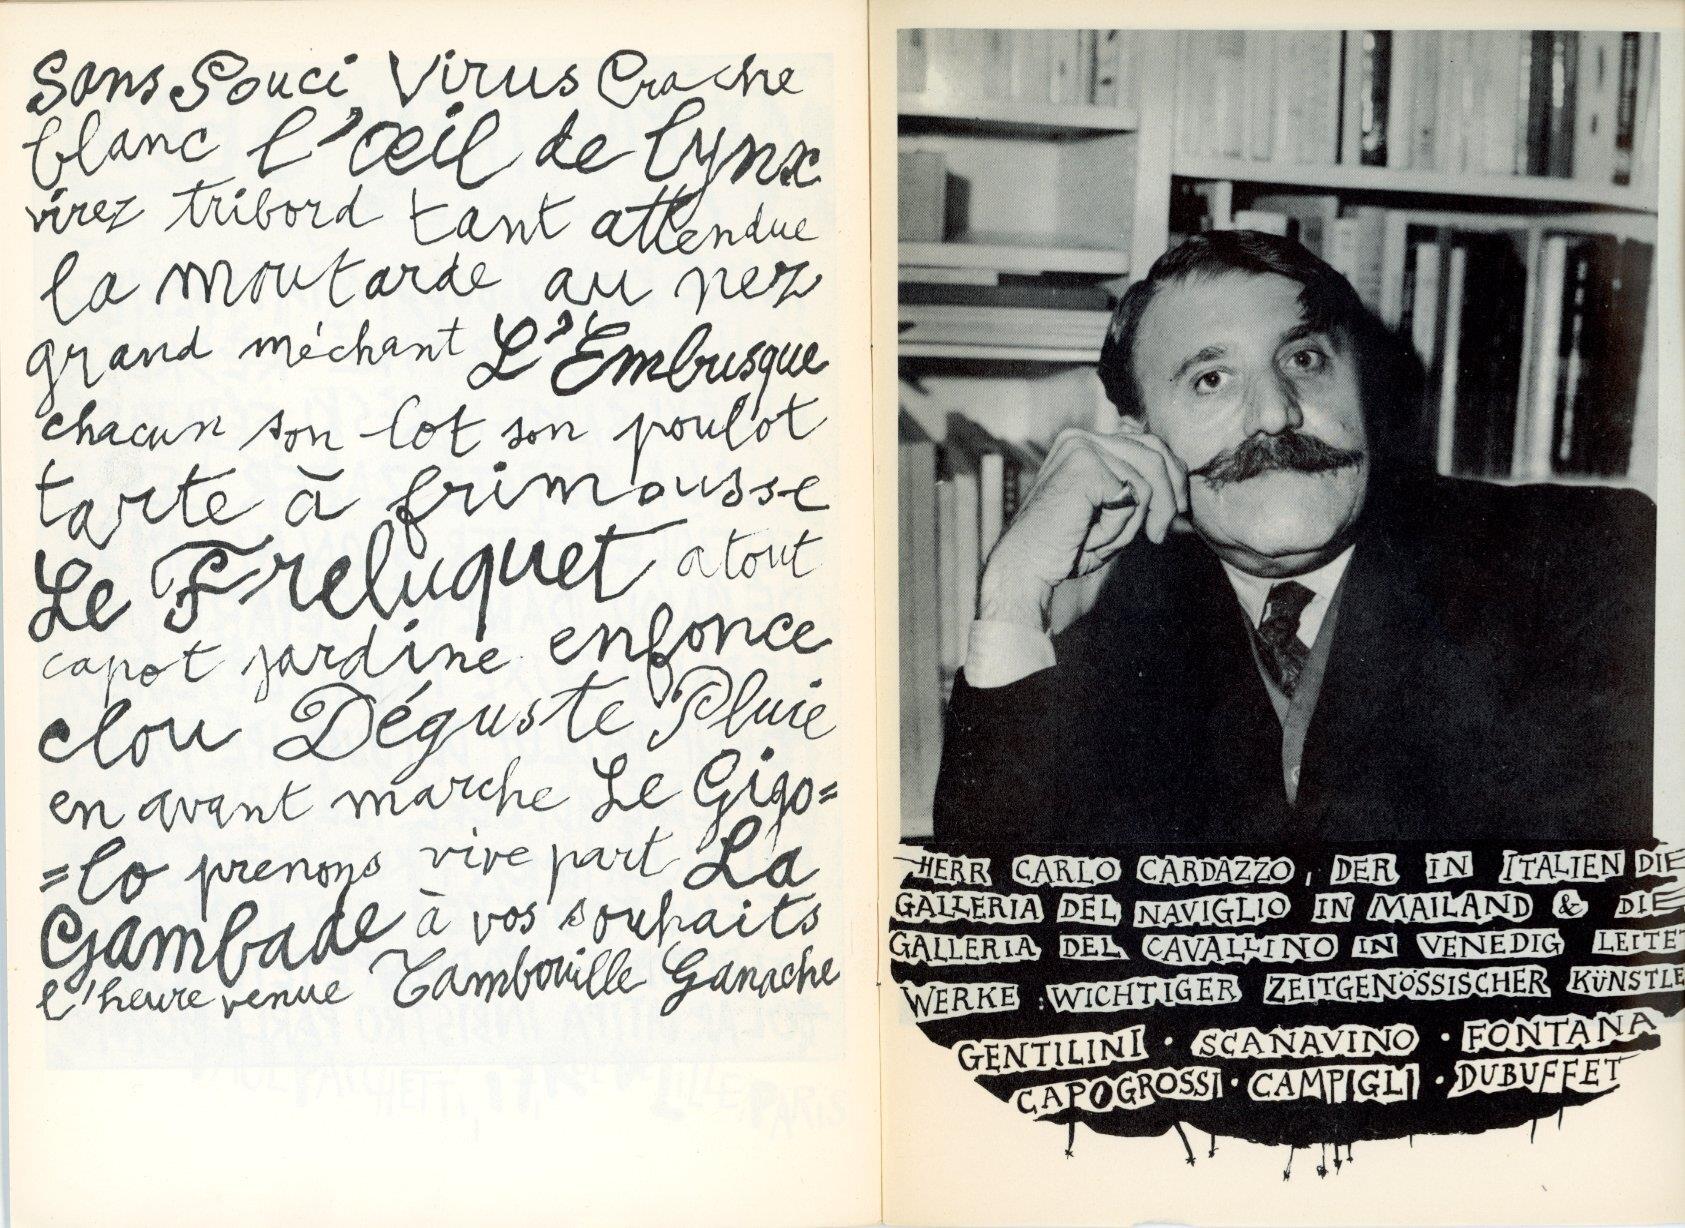 Sans Souci Virus Crache
blanc l'œil de lynx
virez tribord tant attendue
la moutarde au nez
grand méchant L'Embusqué
chacun son lot son poulot
tarte à frimousse
Le Freluquet atout
capot jardine enfonce
clou Déguste Pluie
en avant marche Le Gigo=
=lo prenons vive part La
Gambade à vos souhaits
l'heure venue Tambouille Ganache
HERR CARLO CARDAZZO, DER IN ITALIEN DIE
GALLERIA DEL NAVIGLIO IN MAILAND & DIE
GALLERIA DEL CAVALLINO IN VENEDIG LEITET
WERKE WICHTIGER ZEITGENÖSSISCHER KÜNSTLE
GENTILINI · SCANAVINO · FONTANA
CAPOGROSSI · CAMPIGLI · DUBUFFET